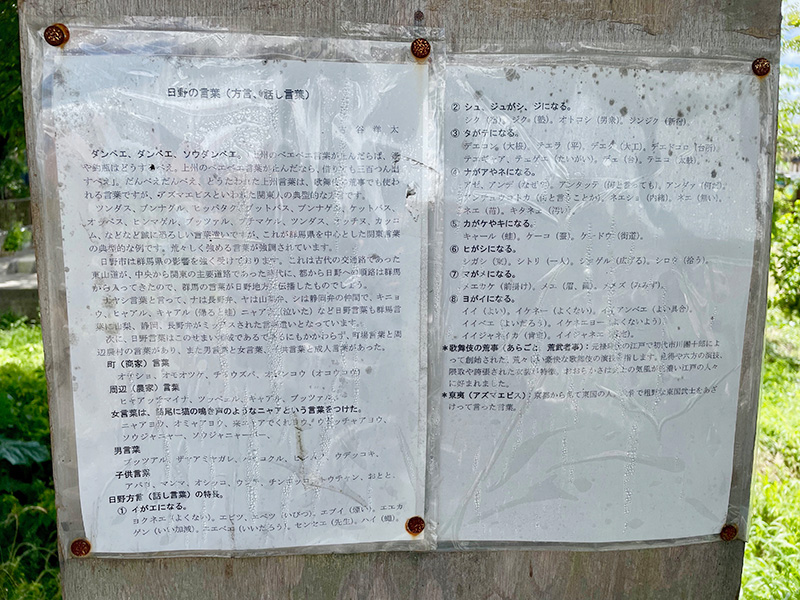 日野の言葉(方言、話し言葉)
谷 太
ダンベエ、ダンベエ、ソウダンベエ。上州のベエベエ言葉が止んだらば、
や釣瓶はどうすべえ。上州のベエベエ言葉が止んだなら、借りても三百つん出
すべえ」。だんべえだんべえ、とうたわれた上州言葉は、歌舞伎の荒事でも使わ
れる言葉ですが、アズマエビスといわれた関東人の典型的な方言です。
ウンダス、ブンナゲル、ヒッパタク、ブットバス、ブンナグル、ケットバス、
オデベス、ヒンマゲル、ブッツァル、ブチマケル、ツンダス、マッチス、カッコ
ム、などなど誠に恐ろしい言葉遣いですが、これが群馬県を中心とした関東言葉
の典型的な例です。荒々しく強める言葉が強調されています。
日野市は群馬県の影響を強く受けております。これは古代の交通路であった
東山道が、中央から関東の主要道路であった時代に、都から日野への順路は群馬
から入ってきたので、群馬の言葉が日野地方に伝播したものでしょう。
ナヤシ言葉と言って、ナは長野弁、ヤは山梨弁、シは静岡弁の仲間で、キニョ
ウ、ヒャアル、キャアル(帰ると蛙)ニャアタ(泣いた)など日野言葉も群馬言
葉に山梨、静岡、長野弁がミックスされた言葉遣いとなっています。
次に、日野言葉はこのせまい地域であるであるにもかかわらず、町場言葉と周
辺農村の言葉があり、また男言葉と女言葉、子供言葉と成人言葉があった。
町(商家)言葉
オイショ、オモオツケ、チョウズバ、オシンヨウ(オコウコウ)
周辺(農家)言葉
ヒャアッチマイナ、ツッペエル、キャアル、ブッツァル、
女言葉は、語尾に猫の鳴き声のようなニャアという言葉をつけた。
ニャアヨウ、オミャアヨウ、来ニャアでくれヨウ、ウッチャアヨウ、
ソウジャニャー、ソウジャニャーバー、
男言葉
ブッツアル、ザャアミヤガレ、 コクル、 ウデッコキ、
子供言葉
アババ、マンマ、オシッコ、ウンチ、チンポッコ、トウチャン、おとと、
日野方言(話し言葉)の特長。
① イがエになる。
ヨクネエ(よくない)、エビツ、エベツ(いびつ)、エブイ(煙い)、エエカ
ゲン(いい加減)、ニエベエ(いいだろう)、センセエ(先生)、ハイ(蠅)、
② シュ、ジュがシ、ジになる。
シク(宿)、ジク(塾)、オトコシ(男衆)、シンジク(新宿)、
③ タがデになる。
デエコン(大根)、テエラ(平)、デエク(大工)、デエドコロ(台所)、
テエボッア、テエゲエ(たいがい)、デエ(台)、テエコ(太鼓)、
④ ナがアやネになる。
アゼ、アンデ(なぜ?)、アンタッテ(何と言っても)、アンダァ(何だ)、
アンテュウコトカ(何と言うことか)、ネエショ(内緒)、ネエ(無い)、
ネエ(苗)、キタネエ(汚い)、
⑤ カがケやキになる。
キャール(蛙)、ケーコ(蚕)、ケードウ(街道)、
⑥ ヒがシになる。
シガシ(東)、シトリ(一人)、シロゲル(広げる)、シロウ(拾う)、
⑦ マがメになる。
メエカケ(前掛け)、メエ(眉、繭)、メメズ(みみず)、
⑧ ヨがイになる。
イイ(よい)、イケネー(よくない)、イイアンベエ(よい具合)、
イイベエ(よいだろう)、イケネエヨー(よくないよう)、
イイジャネイカ(肯定)、イイジャネエカ(否定)、
*歌舞伎の荒事(あらごと、荒武者事):元禄時代の江戸で初代市川團十郎によ
って創始された、荒々しい豪快な歌舞伎の演技を指します。見得や六方の演技、
隈取や誇張された衣裳が特徴。おおらかさは の気風が色濃い江戸の人々
に好まれました。
*東夷(アズマエビス):京都から見て東国の人、 で粗野な東国武士をあざ
けって言った言葉。